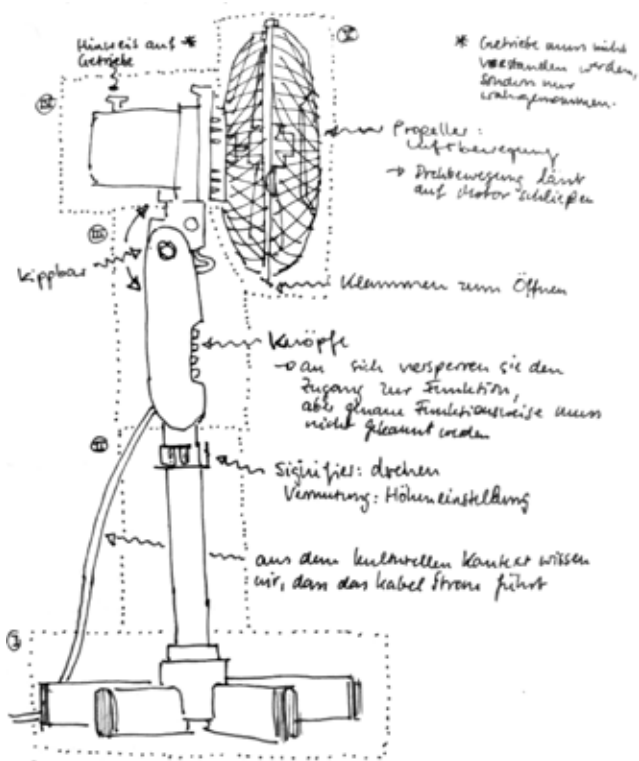 Hinweis auf *
Getriebe
* Getriebe muss nicht
verstanden werden,
sondern nur
wahrgenommen.
V
IV
Propeller:
Luftbewegung
→ Drehbewegung lässt
auf Motor schließen
III
kippbar
Klammern zum Öffnen
Knöpfe
→ an sich versperren sie den
Zugang zur Funktion,
aber genaue Funktionsweise muss
nicht gekannt werden
II
Signifier: drehen
Vermutung: Höheneinstellung
aus dem kulturellen Kontext wissen
wir, dass das Kabel Strom führt
I